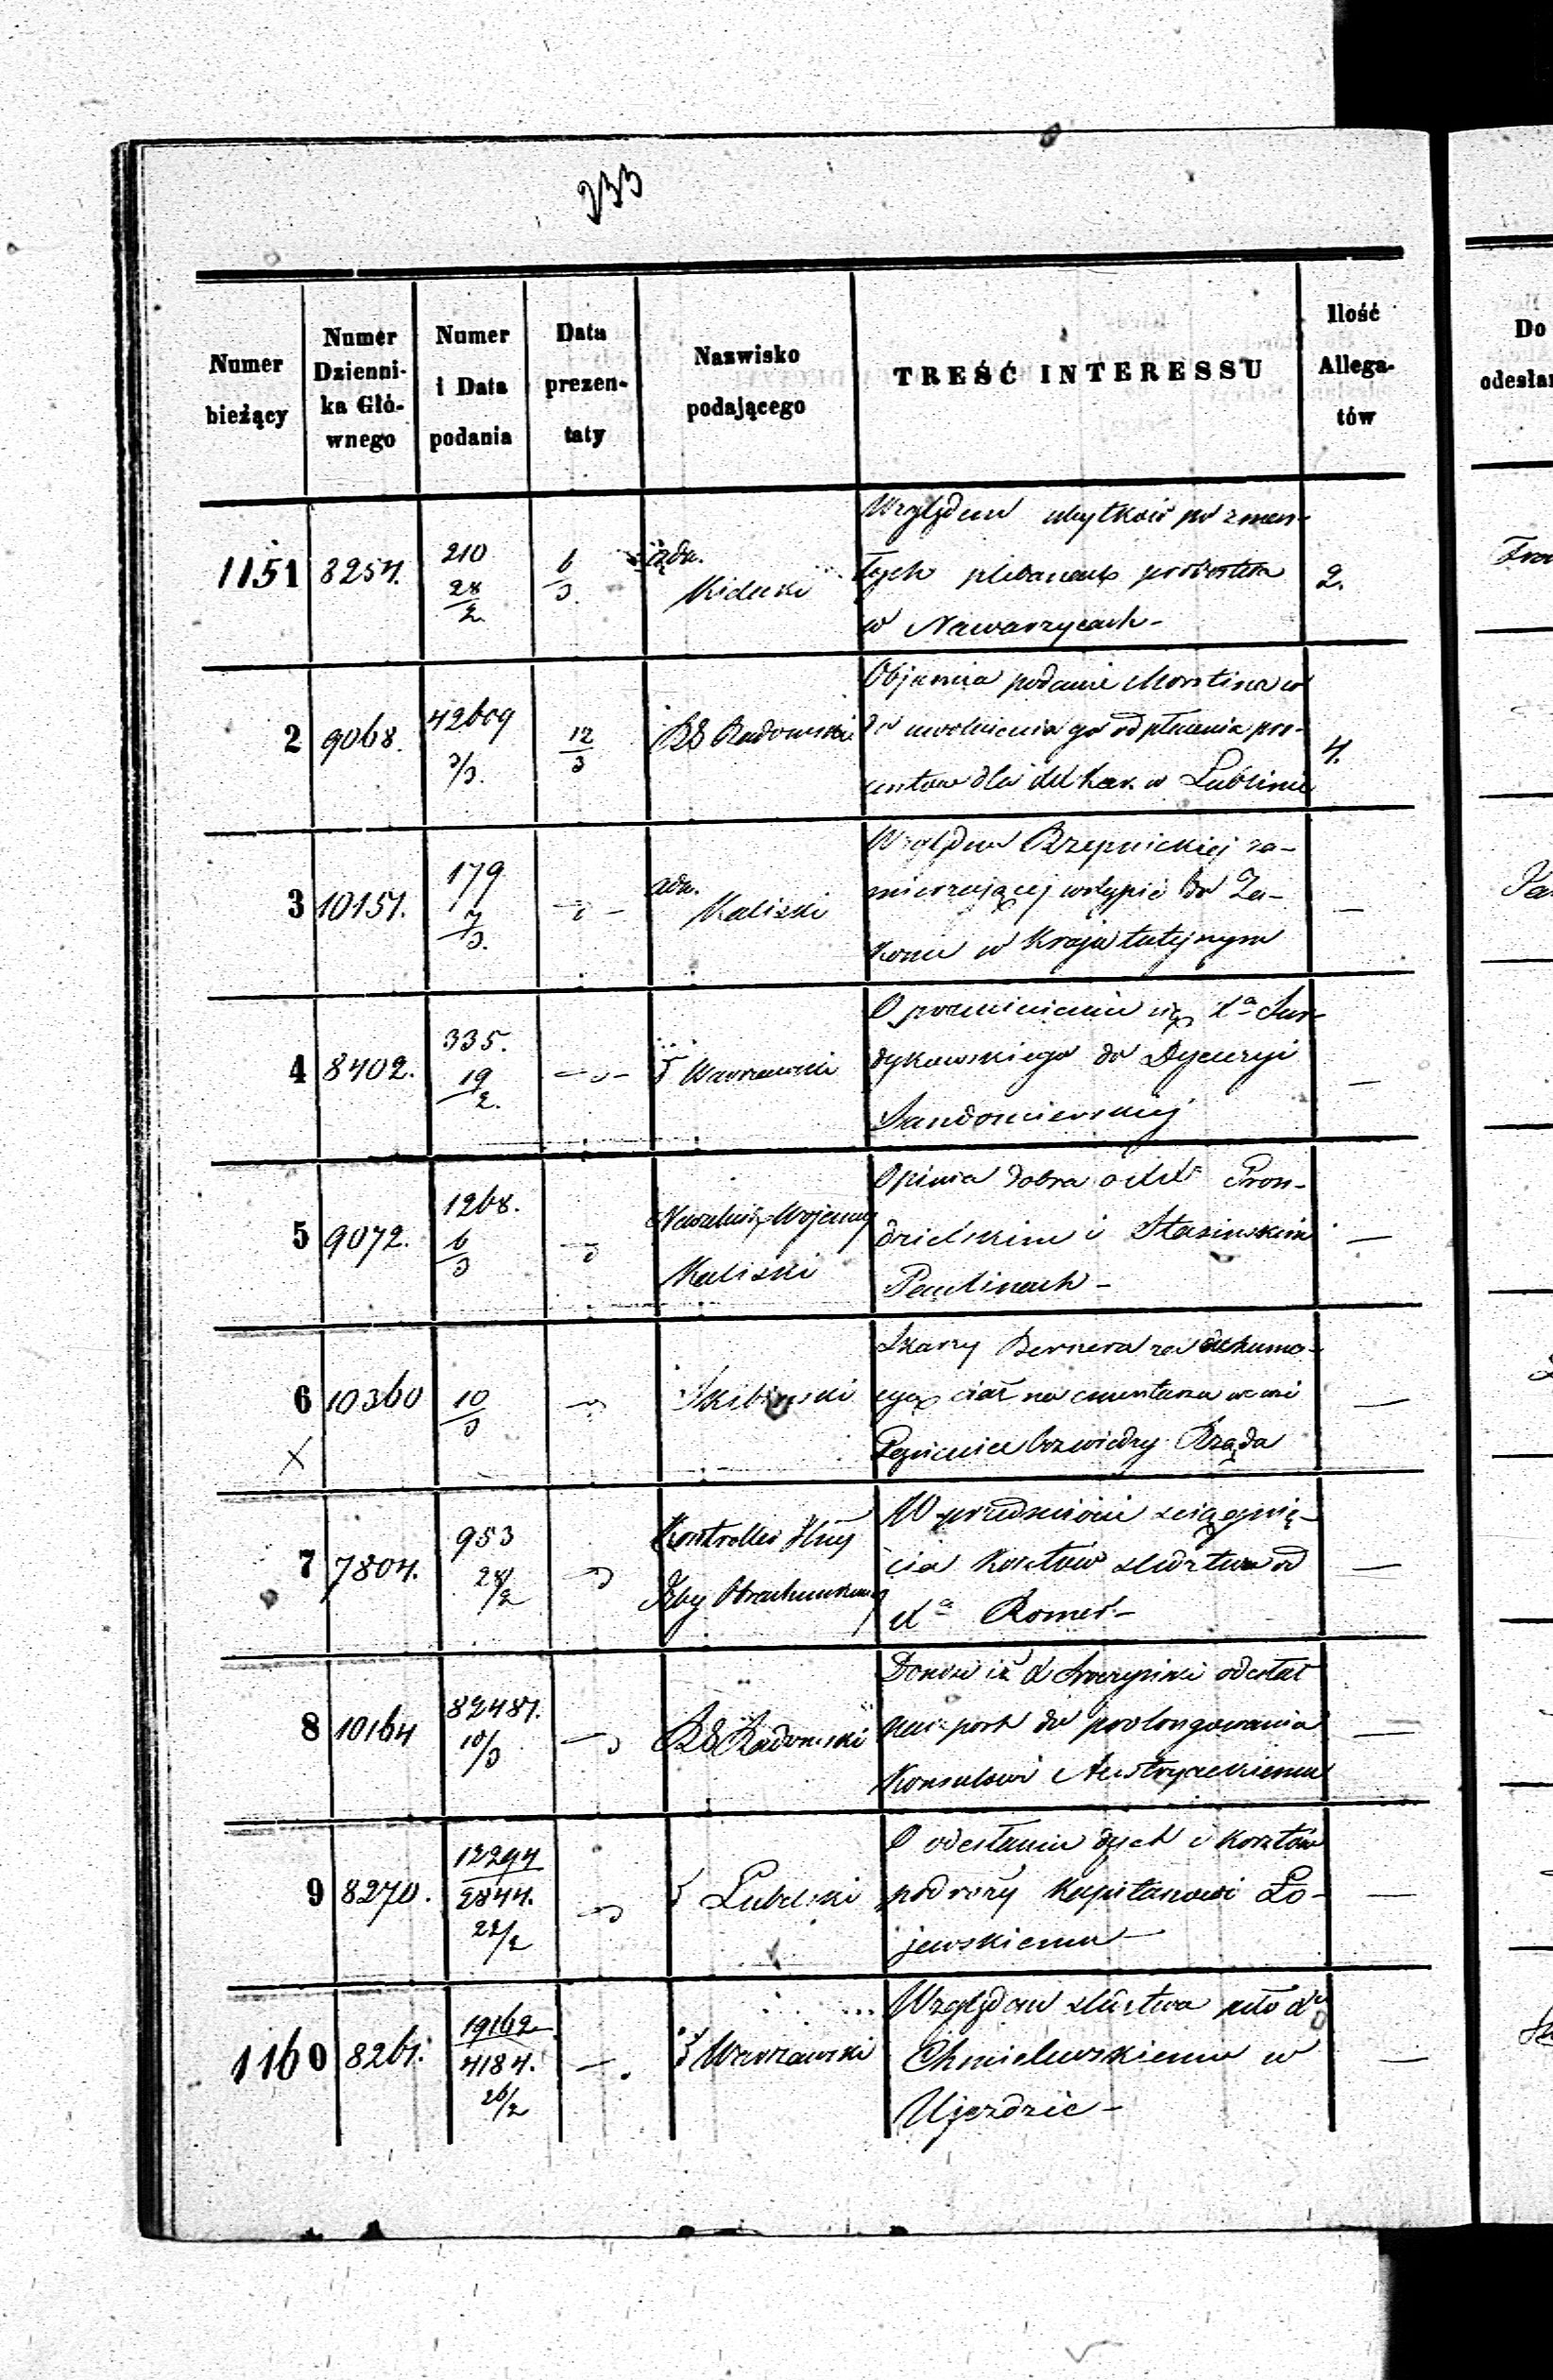 233
Numer bieżący
Numer Dzienni-ka Głó-wnego
Numer i Data podania
Data prezen-taty
Nazwisko podającego
TREŚĆ INTERESSU
Ilość Allega-tów
Do
odesłan
1151 8254. 210 28/2 6/3 adm. Względem użytków po zmar-
łych plebanach probostwa 2.
w Nawarzycach-
2 9068. 42609 3/3. 12/3 RG Radomski Objasnia podanie Morstina w
do uwolnienia go od płacenia pro-
centów dla Kar. w Lublinie 4.
3 10151. 179 7/3. adm. Kaliski Względem Rzepnickiej za-
mierzającej wstąpić do Za-
konu w Kraju tutejszym
4 8402. 335. 19/2. Warszawski O przeniesieniu się Xa
dykowskiego do Dyecezyi
Sandomierskiej
5 9072. 1268. 6/3 Naczelnik Wojenny
Kaliski
Opinia dobra o XX Fron-
dzielskim i Stasinskim
Paulinach-
6 10360 10/3 Skibinski Skarży Bernera za exhuma-
cyą ciał na cmentarzu we wsi
bez wiedzy Rządu
X
7 7804. 953 28/2 Kontroller Jlny
Izby Obrachunkowej
W przedmiocie ściągnię-
cia kosztów śledztwa od
Xa Romer-
8 10164 82487. 10/3 RG Radomski Donosi iż X odesłał
paszport do prolongowania
Konsulowi Austryackiemu
9 8270. 12294 2844. 28/2 Lubelski O odesłaniu dyet i kosztów
podróży Kapitanowi Ło-
jewskiemu-
1160 8261. 19162 4184. 26/2 Warszawski Względem śledztwa pko Xu
Chmielewskiemu w
Ujezdzie-